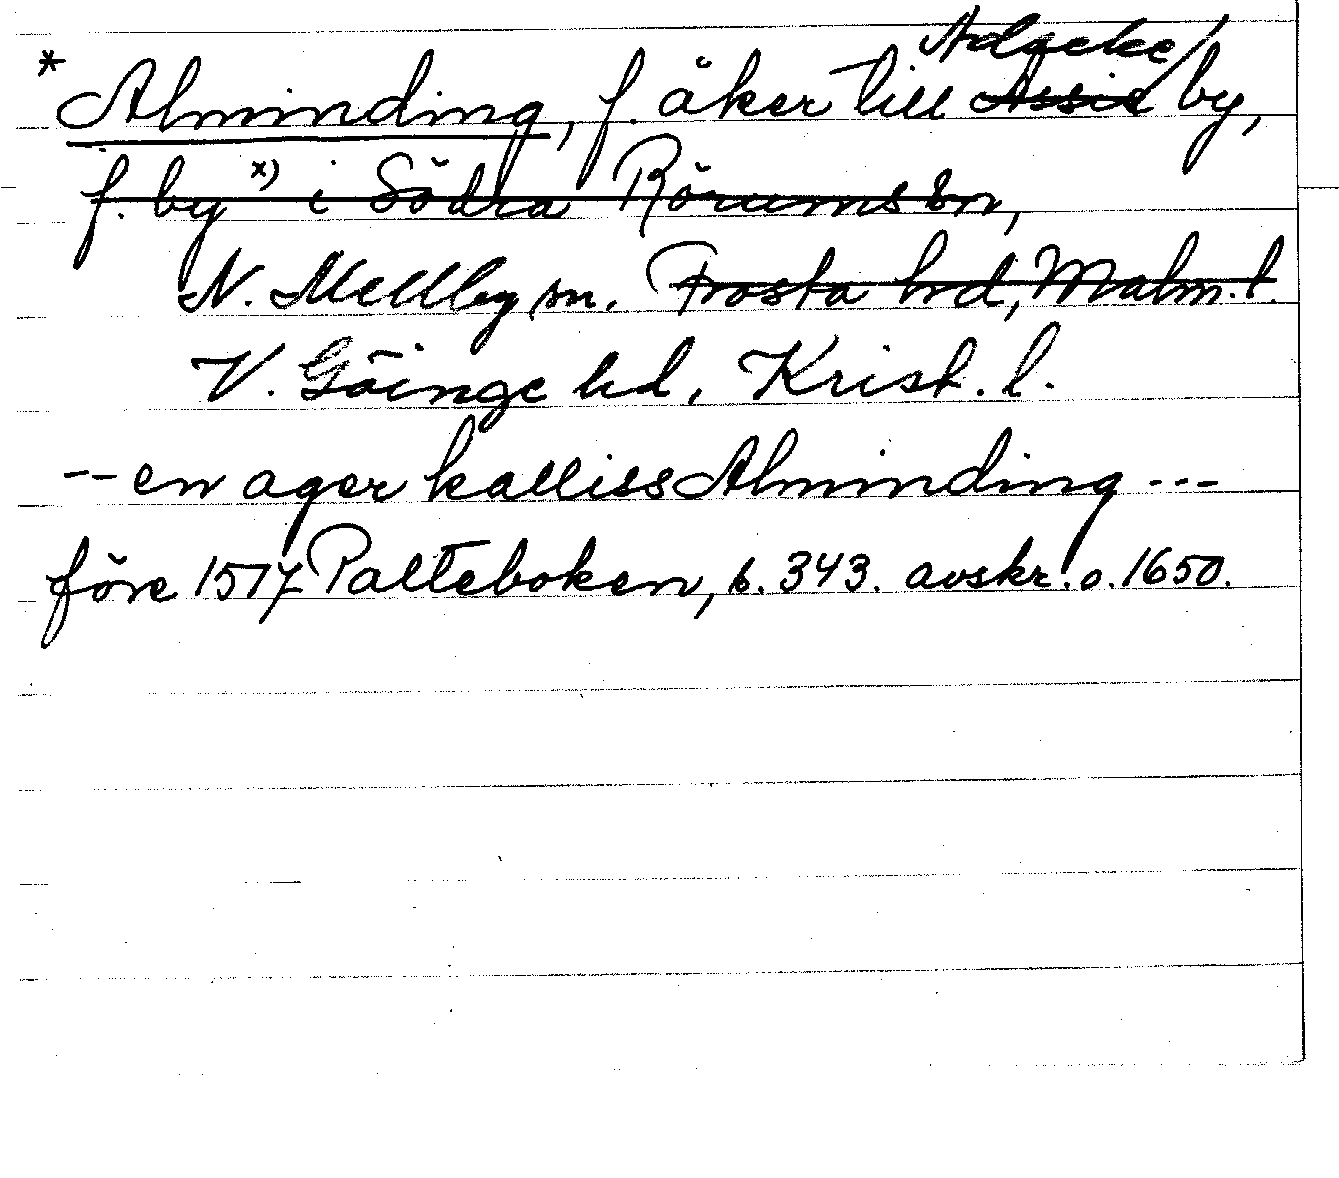 Adseke
* Alminding, f. åker till Assie by,
f. by x) i Södra Rörums sn,
N. Mellby sn. Frosta hd, Malm. l.
V. Göinge hd, Krist. l.
-- en ager kalliss Alminding ---
före 1517 Palteboken, s. 343. avskr. o. 1650.